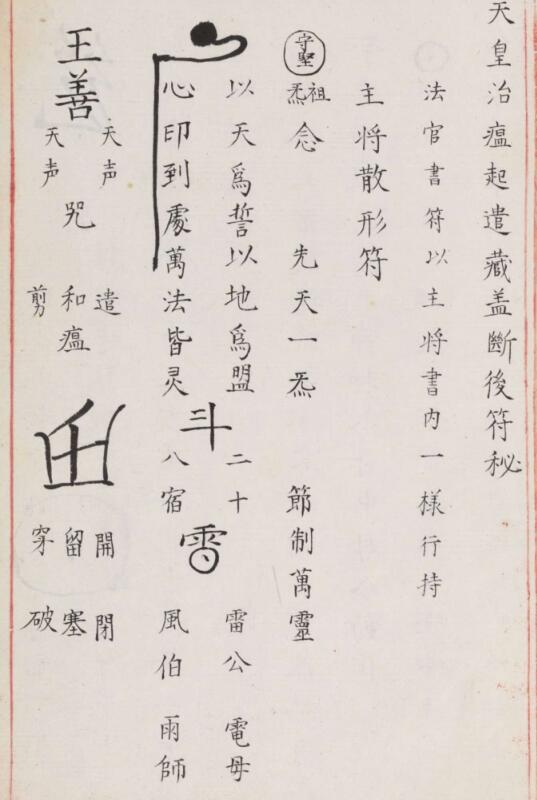 天皇治瘟起遣藏盖斷後符秘
法官書符以主將書内一樣行持
主將散形符
守堅
祖炁念　先天一炁　節制萬靈
以天爲誓以地爲盟　二十　雷公　電母
心印到處萬法皆灵　斗　八宿　雷　風伯　雨師
天声　遣　開　閉
王善　咒　和瘟　留　塞
天声　剪　穿　破